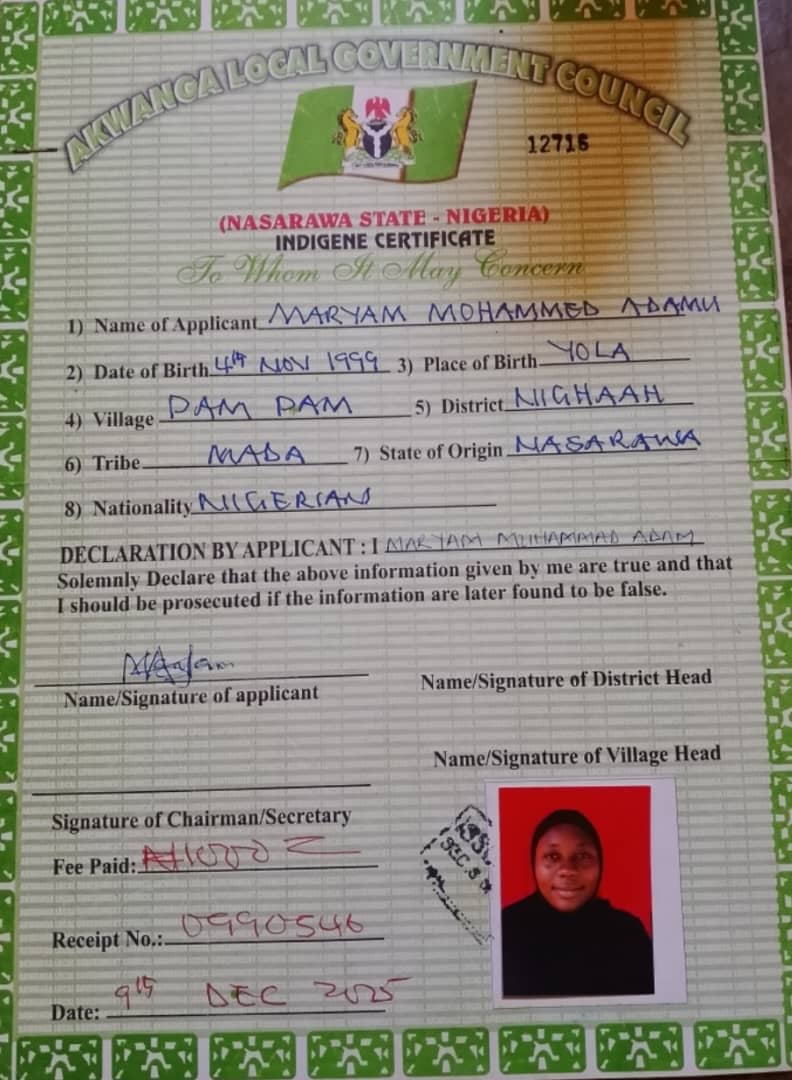 AKWANGA LOCAL GOVERNMENT COUNCIL
12716
(NASARAWA STATE - NIGERIA)
INDIGENE CERTIFICATE
To Whom It May Concern
1) Name of Applicant MARYAM MOHAMMED ADAMU
2) Date of Birth 4th NOV 1999 3) Place of Birth YOLA
4) Village DAM DAM 5) District NIGHAAH
6) Tribe MADA 7) State of Origin NASARAWA
8) Nationality NIGERIAN
DECLARATION BY APPLICANT : I MARYAM MUHAMMAD ADAM
Solemnly Declare that the above information given by me are true and that
I should be prosecuted if the information are later found to be false.
Name/Signature of applicant
Name/Signature of District Head
Name/Signature of Village Head
Signature of Chairman/Secretary
Fee Paid: ₦1000=
Receipt No.: 0990546
Date: 9th DEC 2025